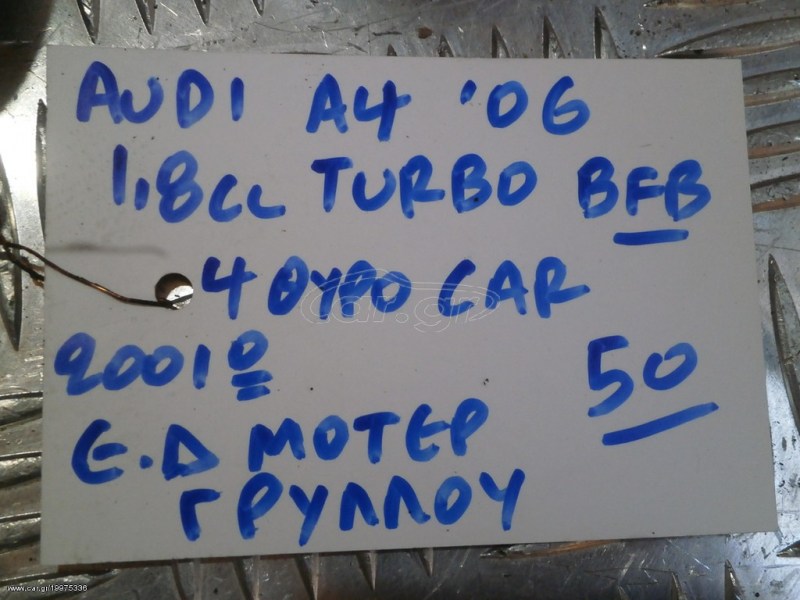 AUDI A4 '06
1,8cc TURBO BFB
4 ΘΥΡΟ CAR
car.gr
20010
50
Ε.Δ ΜΟΤΕΡ
ΓΡΥΛΛΟΥ
www.car.gr/19975336